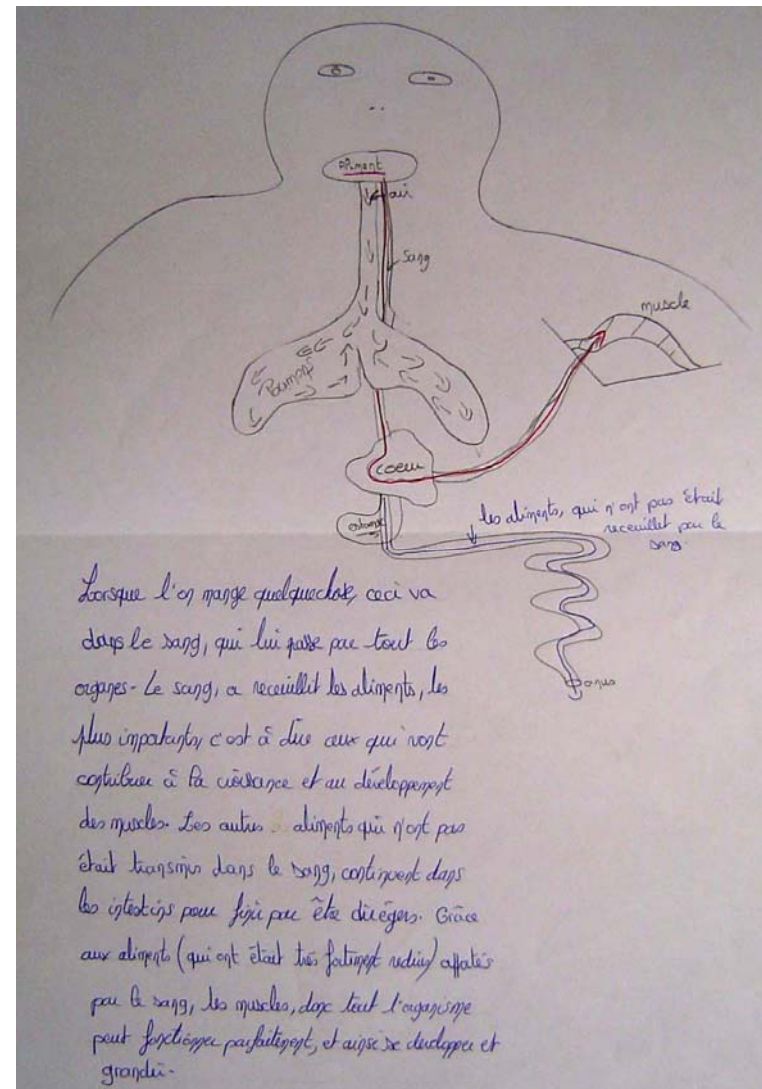 aliment
air
sang
muscle
Poumons
coeur
estomac
les aliments, qui n'ont pas était
receuillet par le
sang.
anus
Lorsque l'on mange quelquechose, ceci va
dans le sang, qui lui passe par tout les
organes. Le sang, a receuillit les aliments, les
plus importants, c'est à dire ceux qui vont
contribuer à la croissance et au développement
des muscles. Les autres aliments qui n'ont pas
était transmis dans le sang, continuent dans
les intestins pour finir par être dirégers. Grâce
aux aliments (qui ont était très fortement réduis) apportés
par le sang, les muscles, donc tout l'organisme
peut fonctionner parfaitement, et ainsi se developper et
grandir.